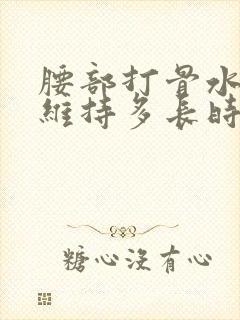 腰部打骨水
維持多長時
糖心沒有心